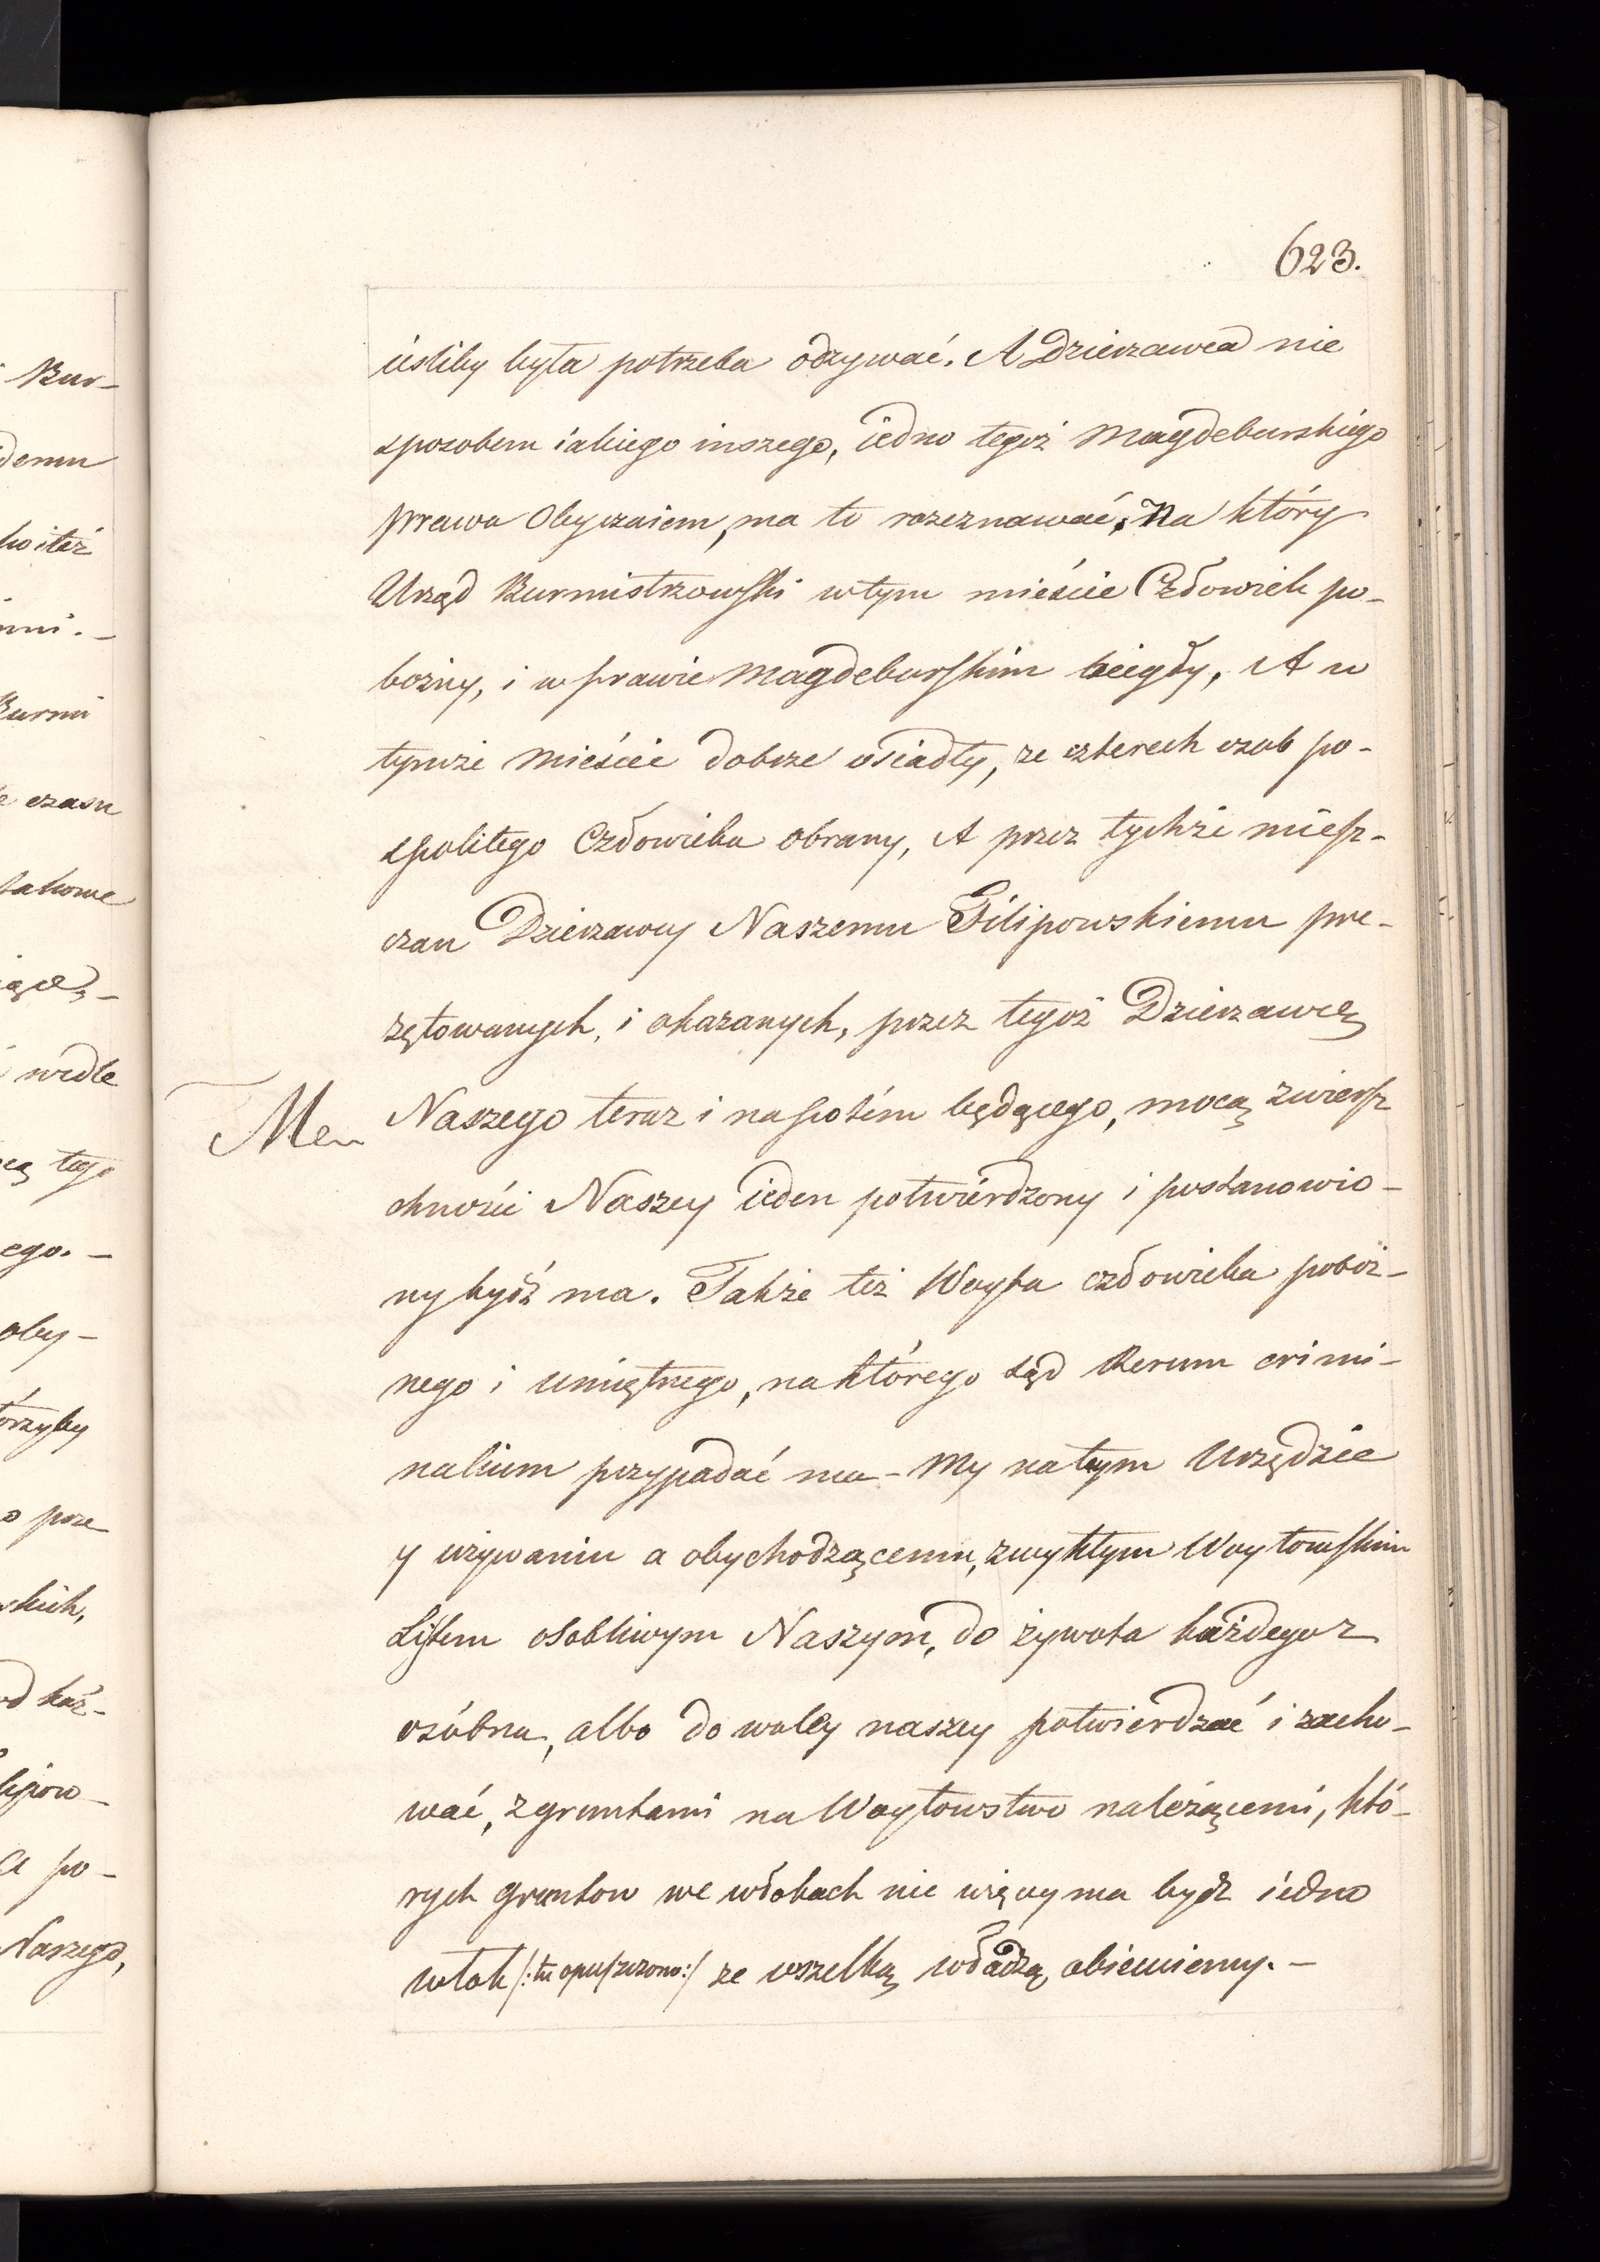 623.
iésliby była potrzeba odzywać. A Dzierzawca nie
sposobem iakiego inszego, iedno tegoż Magdeburskiégo
prawa Obyczaiem, ma to rozeznawać. Na który
Urząd Burmistrzowski w tym mieście Człowiek po-
bożny, i w prawie Magdeburskim biegły, A w
tymże Mieście dobrze osiadły, ze czterech osob po-
spolitego Człowieka obrany, A przez tychże miesz-
czan Dzierzawcy Naszemu Filipowskiemu pre-
zętowanych, i okazanych, przez tegoż Dzierzawcę
Men Naszego teraz i napotém będącego, mocą zwiersz
chności Naszey ieden potwiérdzony i postanowio-
ny bydź ma. Także też Woyta człowieka poboż-
nego i umiętnego, na którego sąd Rerum crimi-
nalium przypadać ma - My na tym Urzędzie
y używaniu a obychodzącemu, zwykłym Woytowskim
Listem osobliwym Naszym, do żywota każdego z
osóbna, albo do woley naszey potwierdzać i zacho-
wać, z gruntami na Woytowstwo należącemi, któ-
rych gruntow we włokach nie więcy ma bydz iedno
włok /: tu opuszczono :/ ze wszelką władzą, obiecuiemy. -
Bur-
demu
czasu
wedle
tego
oby-
prze
po-
Naszego,